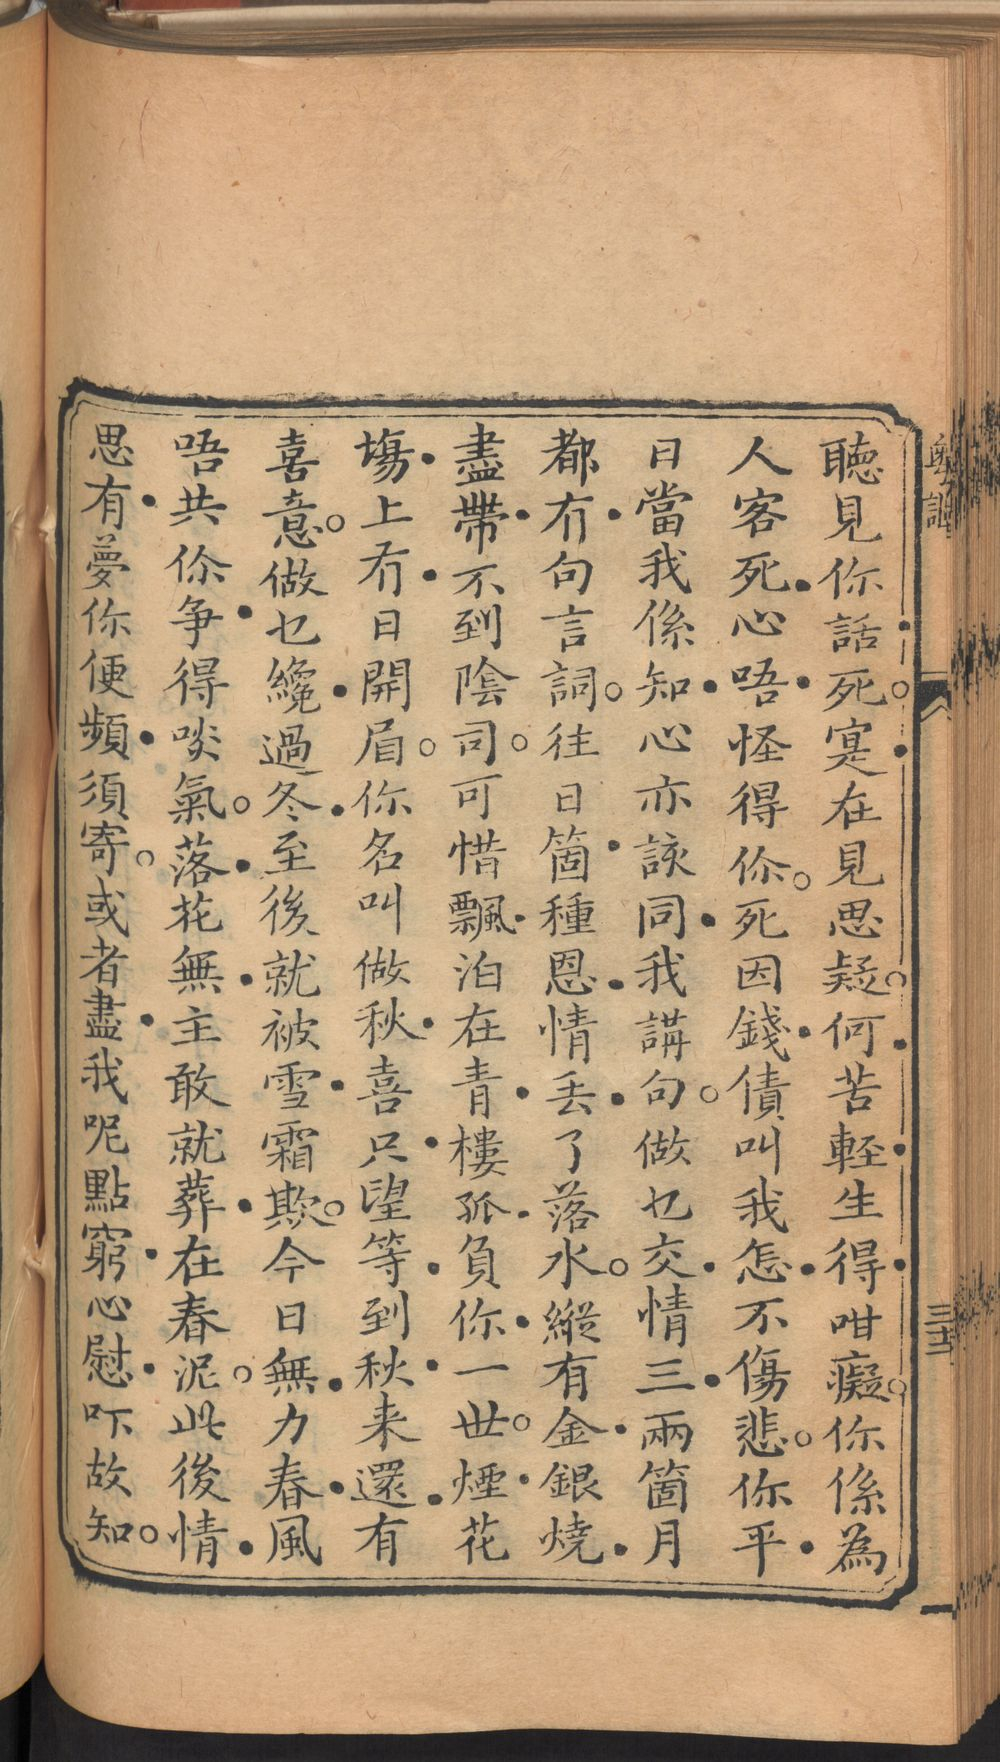 聽見你話死。寔在見思疑。何苦輊生得咁癡。你係為
人客死心唔怪得你。死因錢債叫我怎不傷悲。你平
日當我係知心亦該同我講句。做乜交情三兩箇月
都冇句言詞。往日箇種恩情丟了落水。縱有金銀燒
盡帶不到陰司。可惜飄泊在青樓孤負你一世。煙花
塲上冇日開眉。你名叫做秋喜只望等到秋来還有
喜意。做乜纔過冬至後就被雪霜欺。今日無力春風
唔共你争得啖氣。落花無主敢就葬在春泥。此後情
思有夢你便頻須寄。或者盡我呢點窮心慰吓故知。
粤謳
三十二